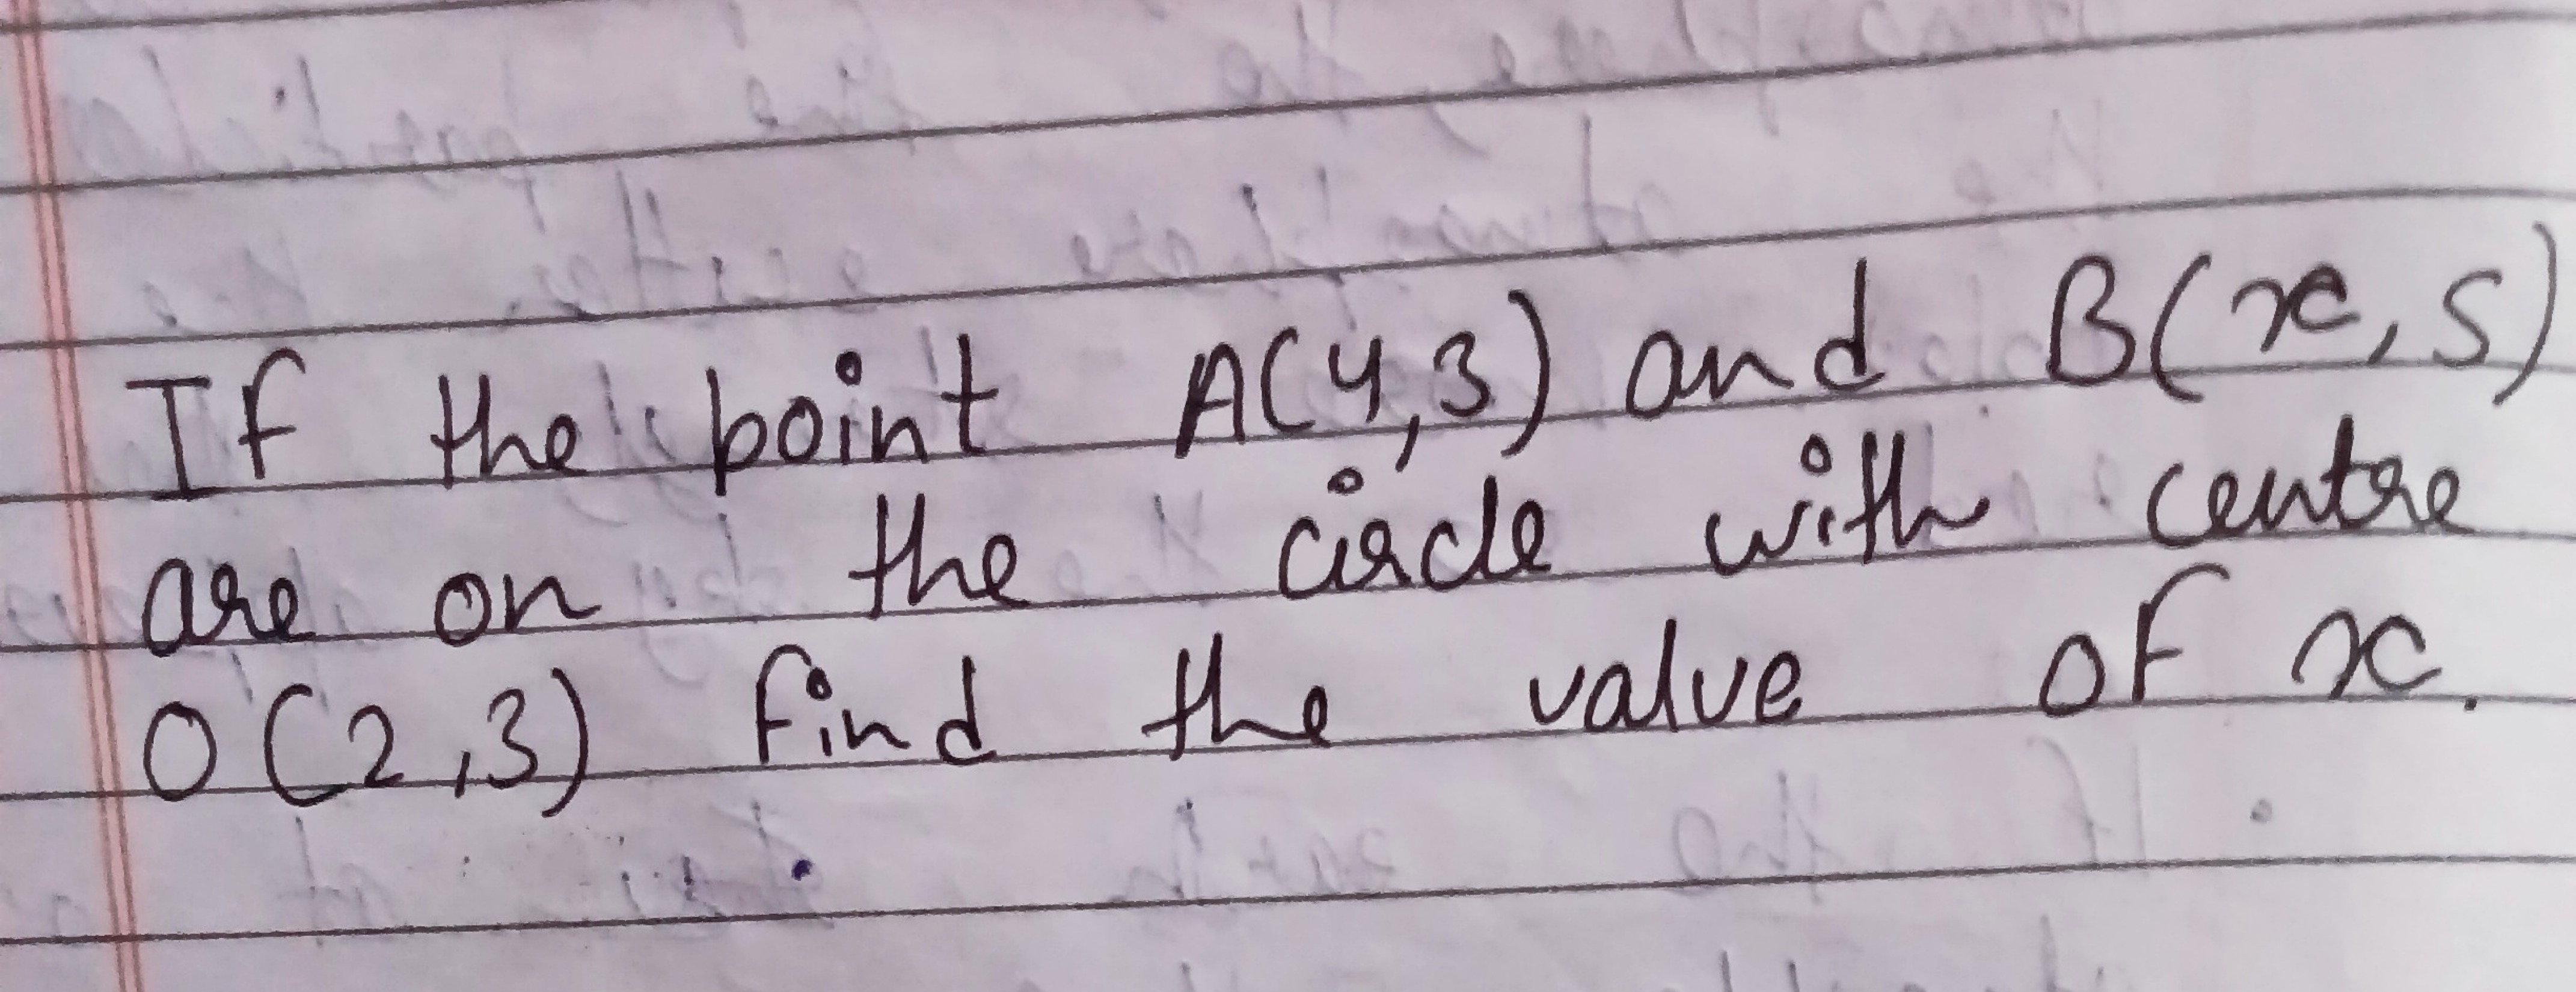 If the point A(4,3) and B(x,5)
are on the circle with centre
O(2,3) find the value of x.